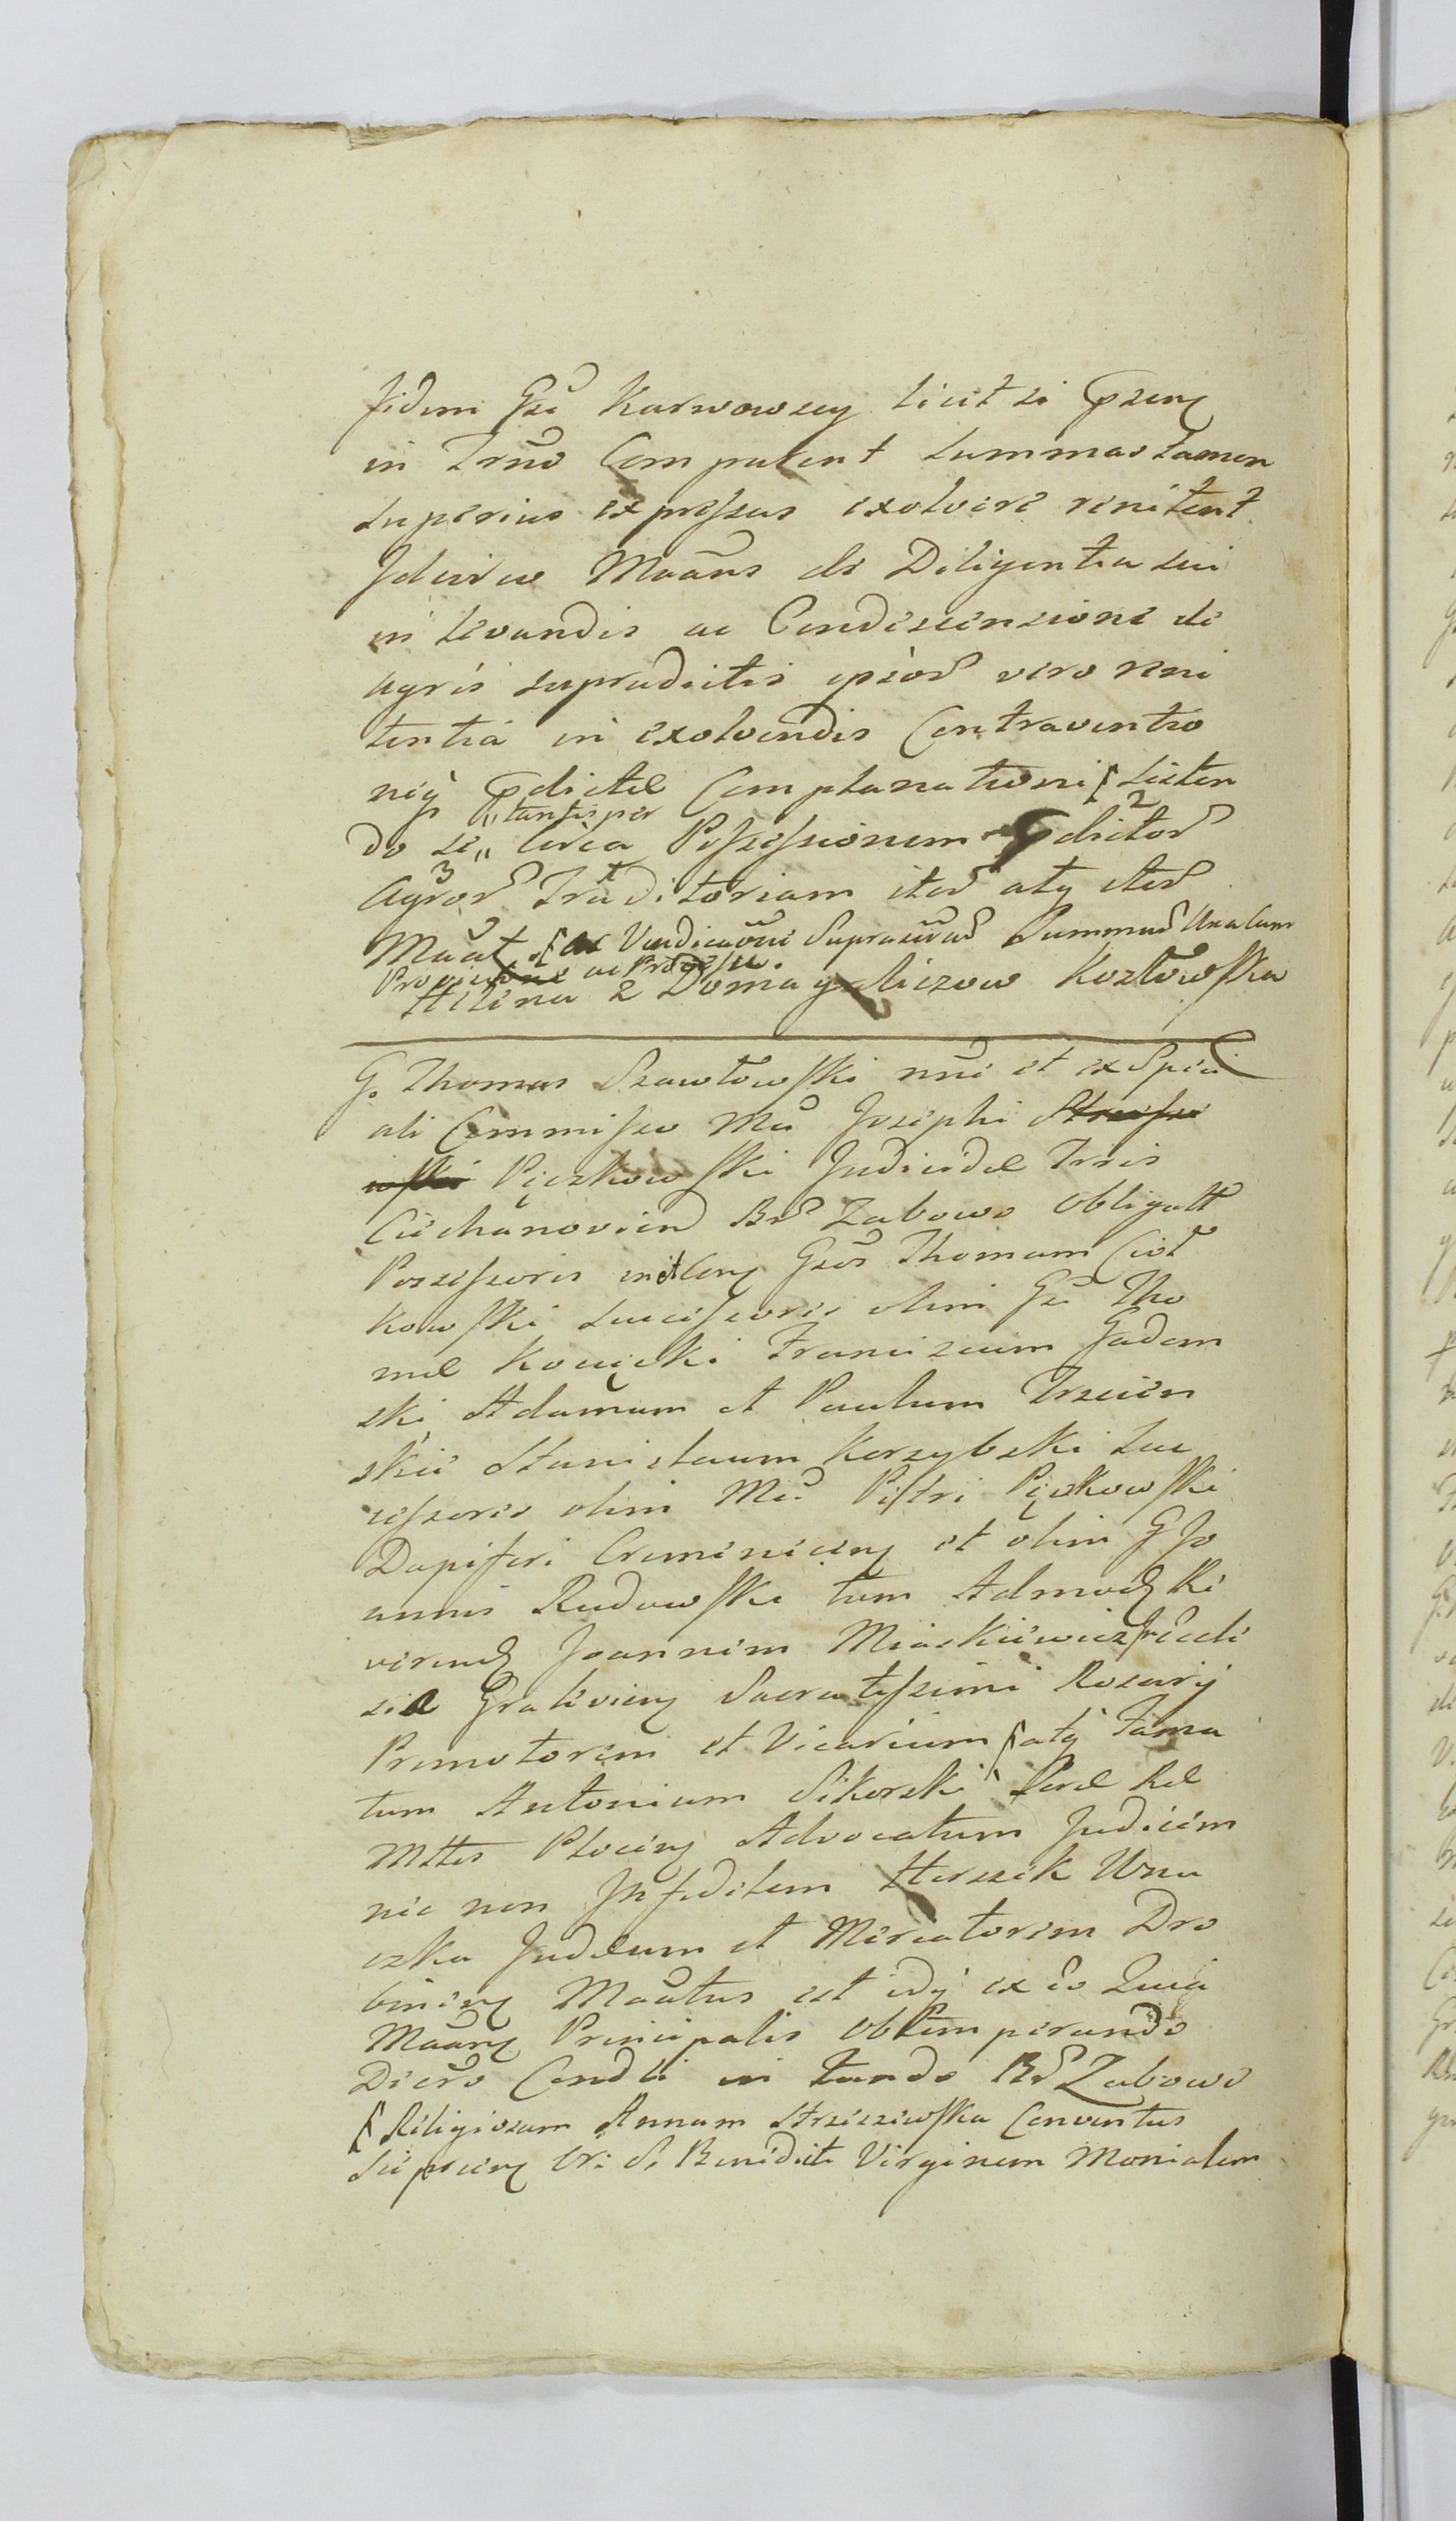 Jidem Gsi Karwowscy licet si pñenj
in Trno Compareant summas tamen
superius expressas exolvere renitent
Jdcirco Maans de Diligentia sui
in levandis ac Condescensione de
agris supradictis ipsor vero reni
tentia in exolvendis Contraventio
neq pdictæ Complanationi ſ Listen
do se „ tantisper circa Possessionem pdictor 2
agror 3 Traditoriam iter atq iter
Maat ſ ac Vindicaõne Suprascrar Summar Una cum
Provisione ac Processu.
Helena z Domagaliczow Kozłowska
G. Thomas Szawłowski nne et ex Speci
ali Commisso Mci Josephi
Pięczkowski Judicidæ Trris
Ciechanovien Br Zabowo obligatt
Possessoris Gsos Thomam Cioł
kowski Successoris olim Gsi Tho
mæ Kocięcki Franciscum Gadom
ski Adamum et Paulum Trzcien
skie Stanislaum Korzybski Suc
cessores olim Mci Petri Pięczkowski
Dapiferi Cremenicen et olim G Jo
annis Rudowski tum Admod Re
verend Joannem Miaskiewicz in Eccle
sia Gralevien Sacratissimi Rosarij
Promotorem et Vicarium ſ atq Fama
tum Antonium Sikorski Sacæ Ræ
Mttis Plocen Advocatum Judicem
nec non Jnfidelem Herszek Wna
czka Judæum et Mercatorem Dro
binen Maatus est idq ex eo Quia
Maans Principalis obtemperando
Decro Condli in fundo Br Zabowo
ſ Religiosam Annam Strzeszewska Conventus
Sieprcen Ori S. Benedicti Virginem Monialem